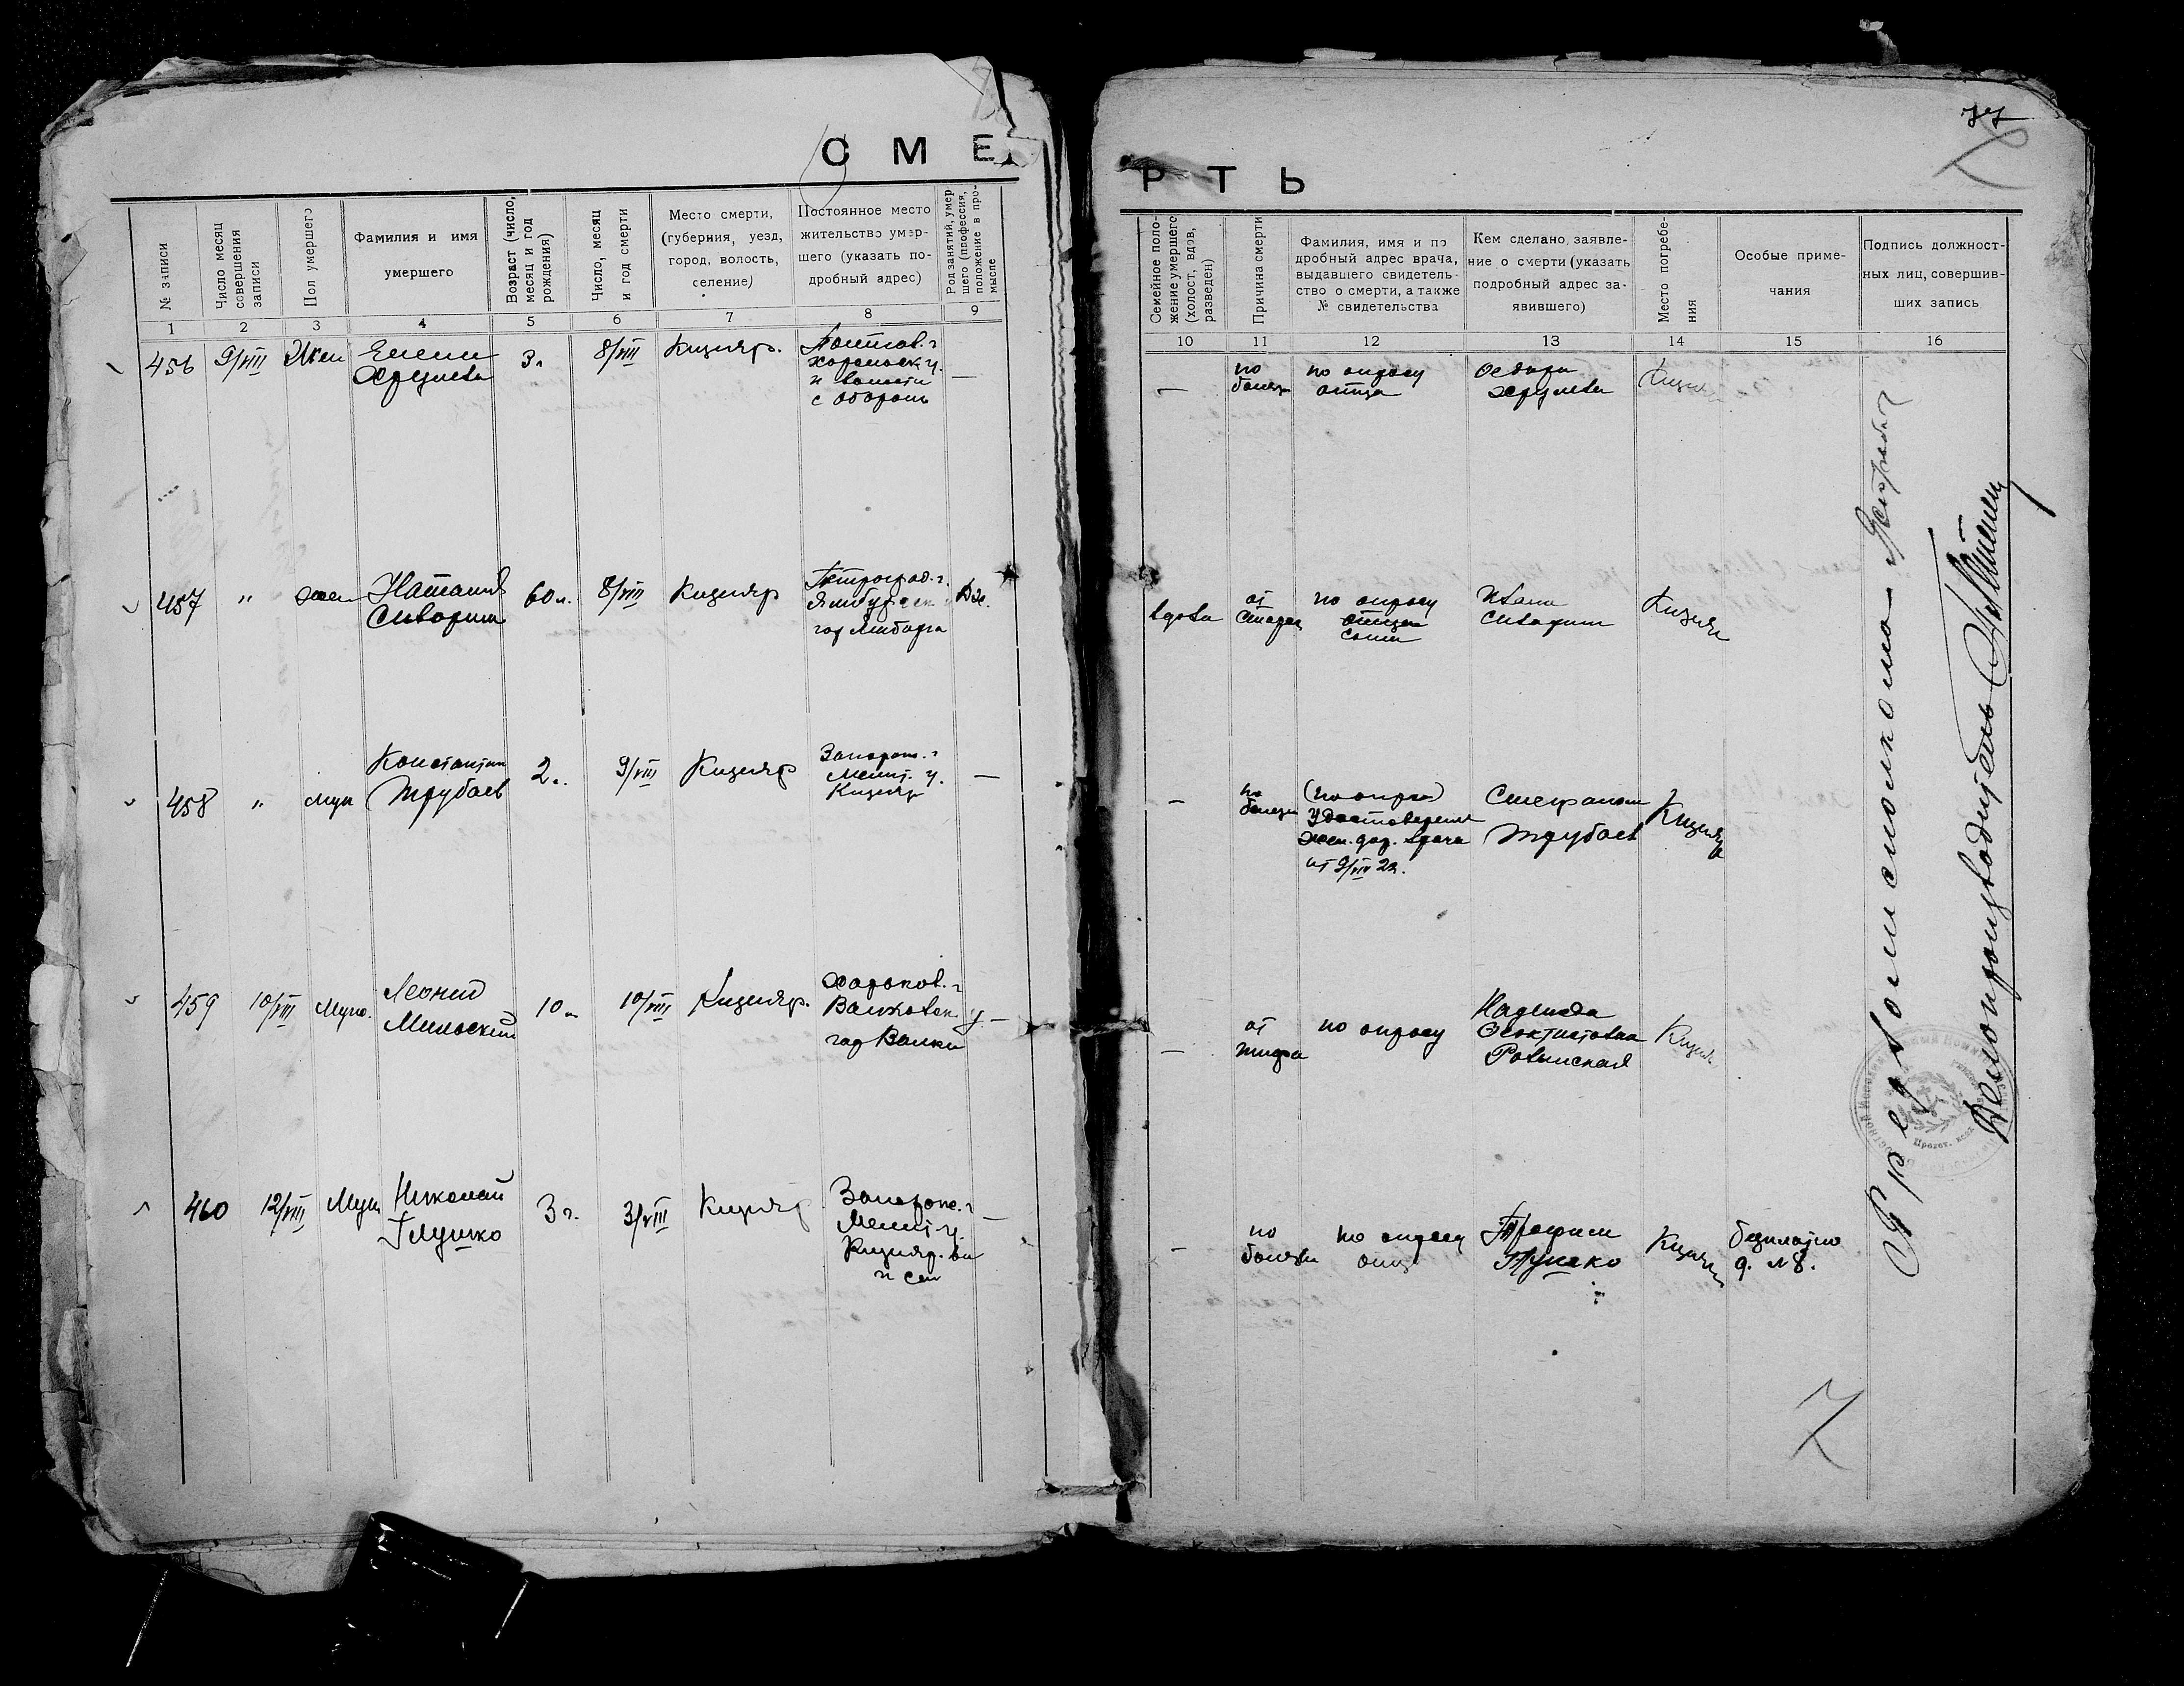 77
С М Е Р Т Ь
№ записи
Число месяц
совершения
записи
Пол умершего
Фамилия и имя
умершего
Возраст (число,
месяц и год
рождения)
Число, месяц
и год смерти
Место смерти,
(губерния, уезд,
город, волость,
селение)
Постоянное место
жительство умер-
шего (указать по-
дробный адрес)
Род занятий, умер
шего (профессия,
положение в про-
мысле
1 2 3 4 5 6 7 8 9
Семейное поло-
жение умершего
(холост, вдов,
разведен)
Причина смерти
Фамилия, имя и по
дробный адрес врача,
выдавшего свидетель-
ство о смерти, а также
№ свидетельства
Кем сделано, заявле-
ние о смерти (указать
подробный адрес за-
явившего)
Место погребе-
ния
Особые приме-
чания
Подпись должност-
ных лиц, совершив-
ших запись
10 11 12 13 14 15 16
456 9/VIII Жен
Елена
Хрулева
3 л
8/VIII
Кизияр.
Полтов. г
Хорольск у.
—
—
по
болезн
по опросу
отца
Хрулева
457 " жен
Наталия
Сиворин
60 л.
8/VIII
Кизияр
Петроград. г.
Ямбург
гор Ямбурга
вдова
от
старос
по опросу
отца
сына
Иван
Сиворин
Кизия
458 " муж
Константин
Трубаев
2 г.
9/VIII
Кизияр
Запорож. г
Мелит. у.
Кизияр
—
—
по
болезн
(по опро)
Удостоверения
жел. дор. врача
от 9/VIII 22.
Стефаном
Трубаев
Кизияр
459 10/VIII Муж.
Леонид
10 м
10/VIII
Кизияр.
Харьков. г
Валковск у.
гор Валки
—
—
от
тифа
по опросу
Надежда
Феоктистовна
Ровинская
Кизия
460 12/VIII Муж
Николай
Глушко
3 г.
3/VIII
Кизияр
Запорож. г
Мелит у.
Кизияр. во
и сел
—
—
по
болезн
по опросу
отц
Трофим
Глушко
Кизия
бесплатно
д. №8.
Предволисполкома
Делопроизводитель